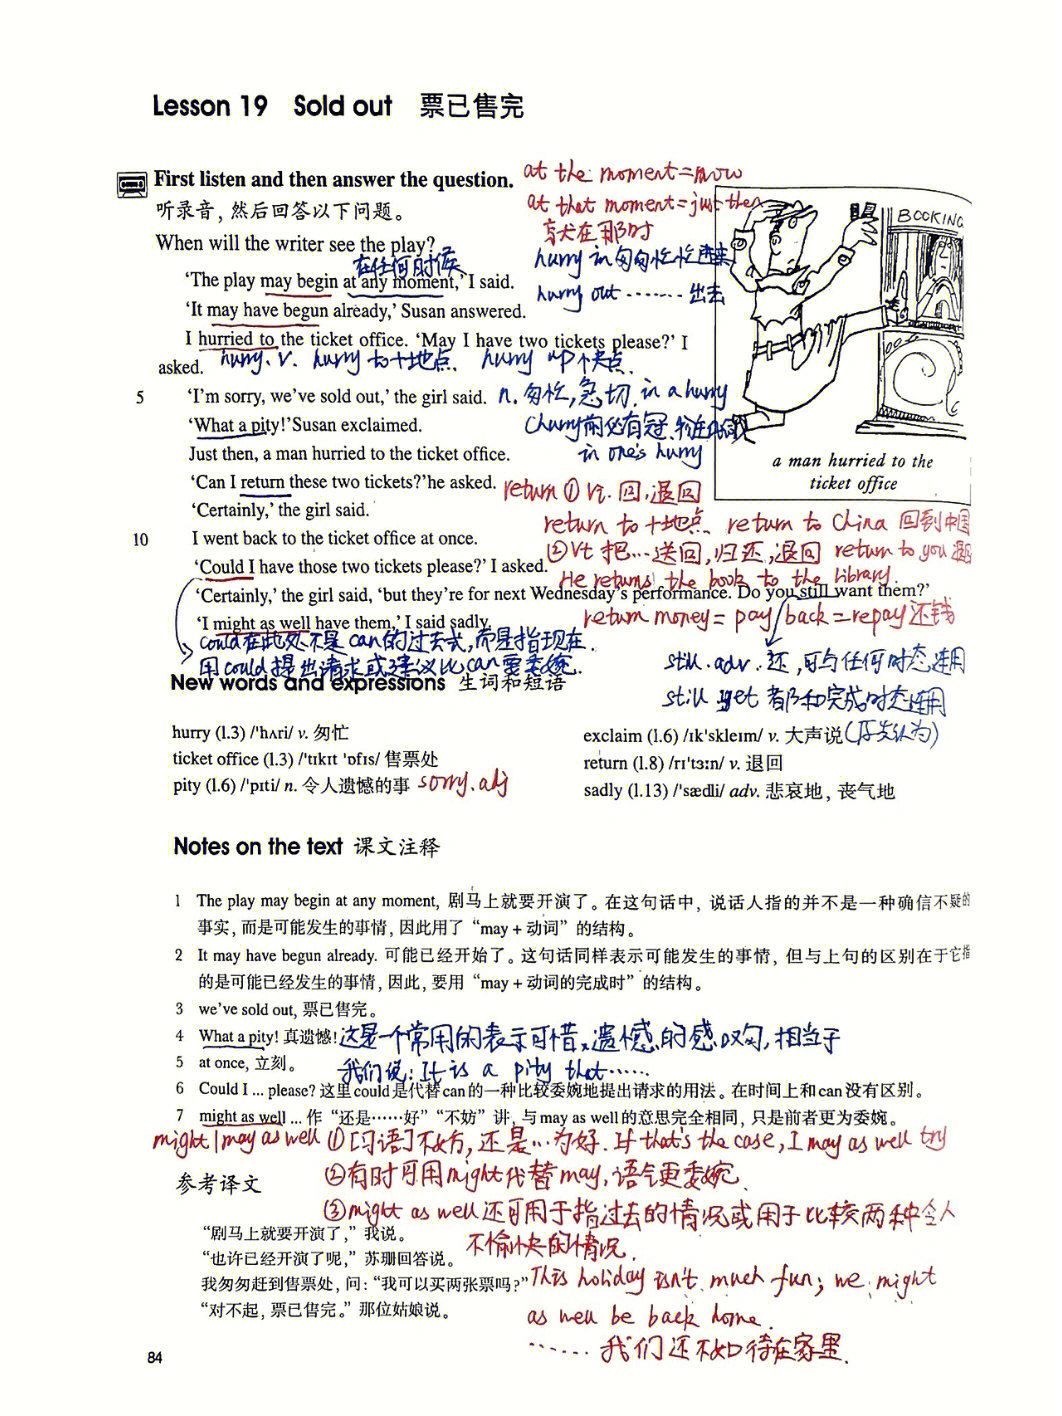 Lesson 19 Sold out 票已售完
First listen and then answer the question.
听录音，然后回答以下问题。
When will the writer see the play?
at the moment=now
at that moment=just then
就在那时
hurry in 匆匆忙忙进来
hurry out ……… 出去
BOOKING
在任何时候
‘The play may begin at any moment,’ I said.
‘It may have begun already,’ Susan answered.
I hurried to the ticket office. ‘May I have two tickets please?’ I
asked.
hurry. v. hurry to+地点. hurry up 快点.
5 ‘I'm sorry, we've sold out,’ the girl said.
n. 匆忙,急切. in a hurry
‘What a pity!’ Susan exclaimed.
in one's hurry
Just then, a man hurried to the ticket office.
‘Can I return these two tickets?’ he asked.
return ① vi. 回,退回
‘Certainly,’ the girl said.
return to +地点 return to China 回到中国
10 I went back to the ticket office at once.
②vt 把…送回,归还,退回 return to you
‘Could I have those two tickets please?’ I asked.
He returns the book to the library.
‘Certainly,’ the girl said, ‘but they're for next Wednesday's performance. Do you still want them?’
‘I might as well have them,’ I said sadly.
return money= pay back=repay 还钱
could在此处不是can的过去式,而是指现在.
用could提出请求或建议比can更委婉.
still. adv. 还,可与任何时态连用
still yet 都和完成时态连用
a man hurried to the
ticket office
New words and expressions 生词和短语
hurry (l.3) /ˈhʌri/ v. 匆忙
ticket office (l.3) /ˈtɪkɪt ˈɒfɪs/ 售票处
pity (l.6) /ˈpɪti/ n. 令人遗憾的事 sorry. adj
exclaim (l.6) /ɪkˈskleɪm/ v. 大声说
return (l.8) /rɪˈtɜːn/ v. 退回
sadly (l.13) /ˈsædli/ adv. 悲哀地，丧气地
Notes on the text 课文注释
1 The play may begin at any moment, 剧马上就要开演了。在这句话中，说话人指的并不是一种确信不疑的
事实，而是可能发生的事情，因此用了“may + 动词”的结构。
2 It may have begun already. 可能已经开始了。这句话同样表示可能发生的事情，但与上句的区别在于它指
的是可能已经发生的事情，因此，要用“may + 动词的完成时”的结构。
3 we've sold out, 票已售完。
4 What a pity! 真遗憾! 这是一个常用的表示可惜、遗憾的感叹句,相当于
5 at once, 立刻。 我们说: It is a pity that……
6 Could I ... please? 这里could是代替can的一种比较委婉地提出请求的用法。在时间上和can没有区别。
7 might as well ... 作“还是……好”“不妨”讲，与may as well的意思完全相同，只是前者更为委婉。
might|may as well ①[习语]不妨,还是…为好. If that's the case, I may as well try
②有时可用might代替may,语气更委婉.
③might as well 还可用于指过去的情况或用于比较两种令人
不愉快的情况.
This holiday isn't much fun; we might
as well be back home.
……我们还不如待在家里.
参考译文
“剧马上就要开演了，”我说。
“也许已经开演了呢，”苏珊回答说。
我匆匆赶到售票处，问：“我可以买两张票吗？”
“对不起，票已售完。”那位姑娘说。
84